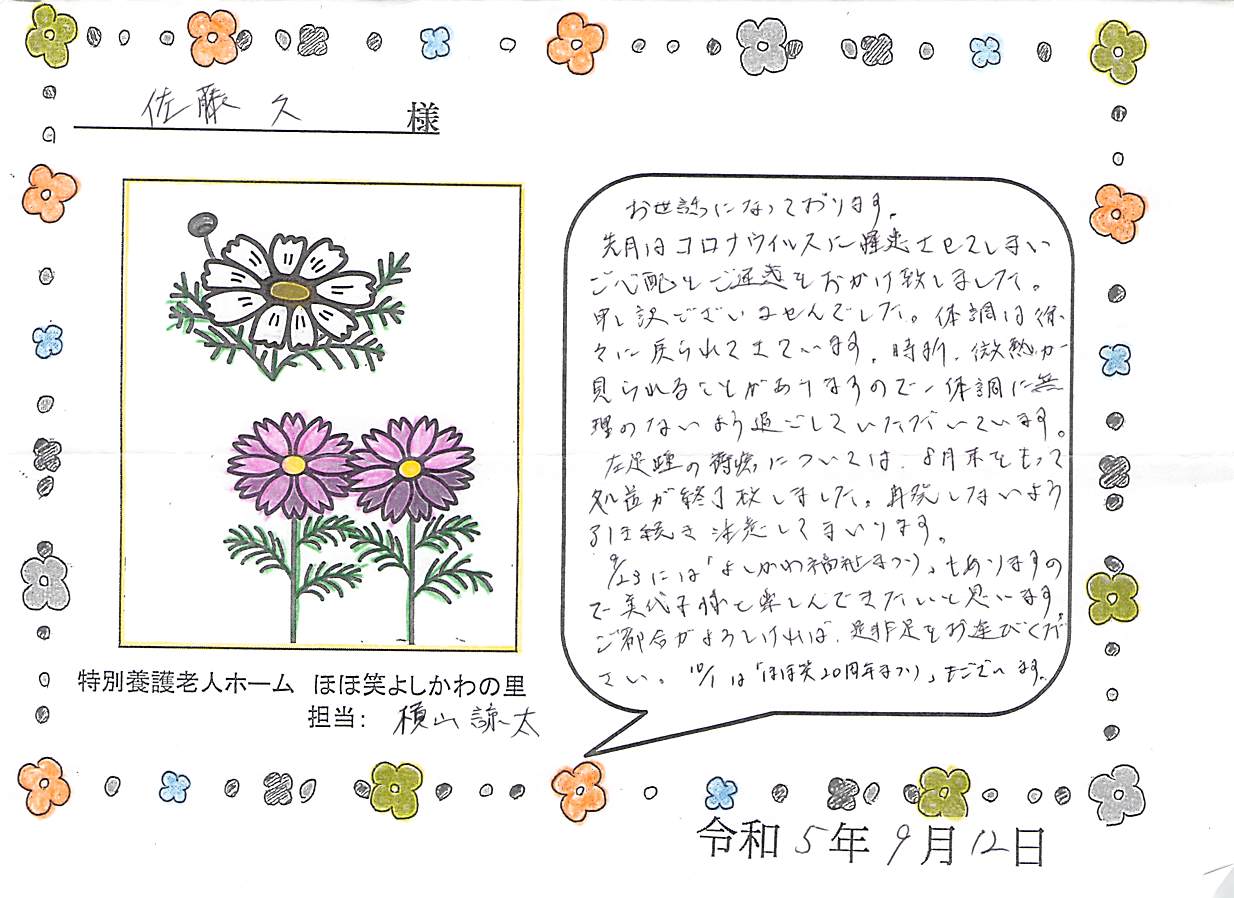 佐藤 久 様
お世話になっております。
先月はコロナウイルスに罹患させてしまい
ご心配とご迷惑をおかけ致しました。
申し訳ございませんでした。体調は徐
々に戻られてきています。時折、微熱が
見られることがありますので、体調に無
理のないよう過ごしていただいています。
左足踵の褥瘡については、8月末をもって
処置が終了致しました。再発しないよう
引き続き注意してまいります。
9/23には「よしかわ福祉まつり」もありますの
で美代子様と楽しんできたいと思います。
ご都合がよろしければ、是非足をお運びくだ
さい。10/1は「ほほ笑20周年まつり」もございます。
特別養護老人ホーム ほほ笑よしかわの里
担当: 横山 諒太
令和5年9月12日